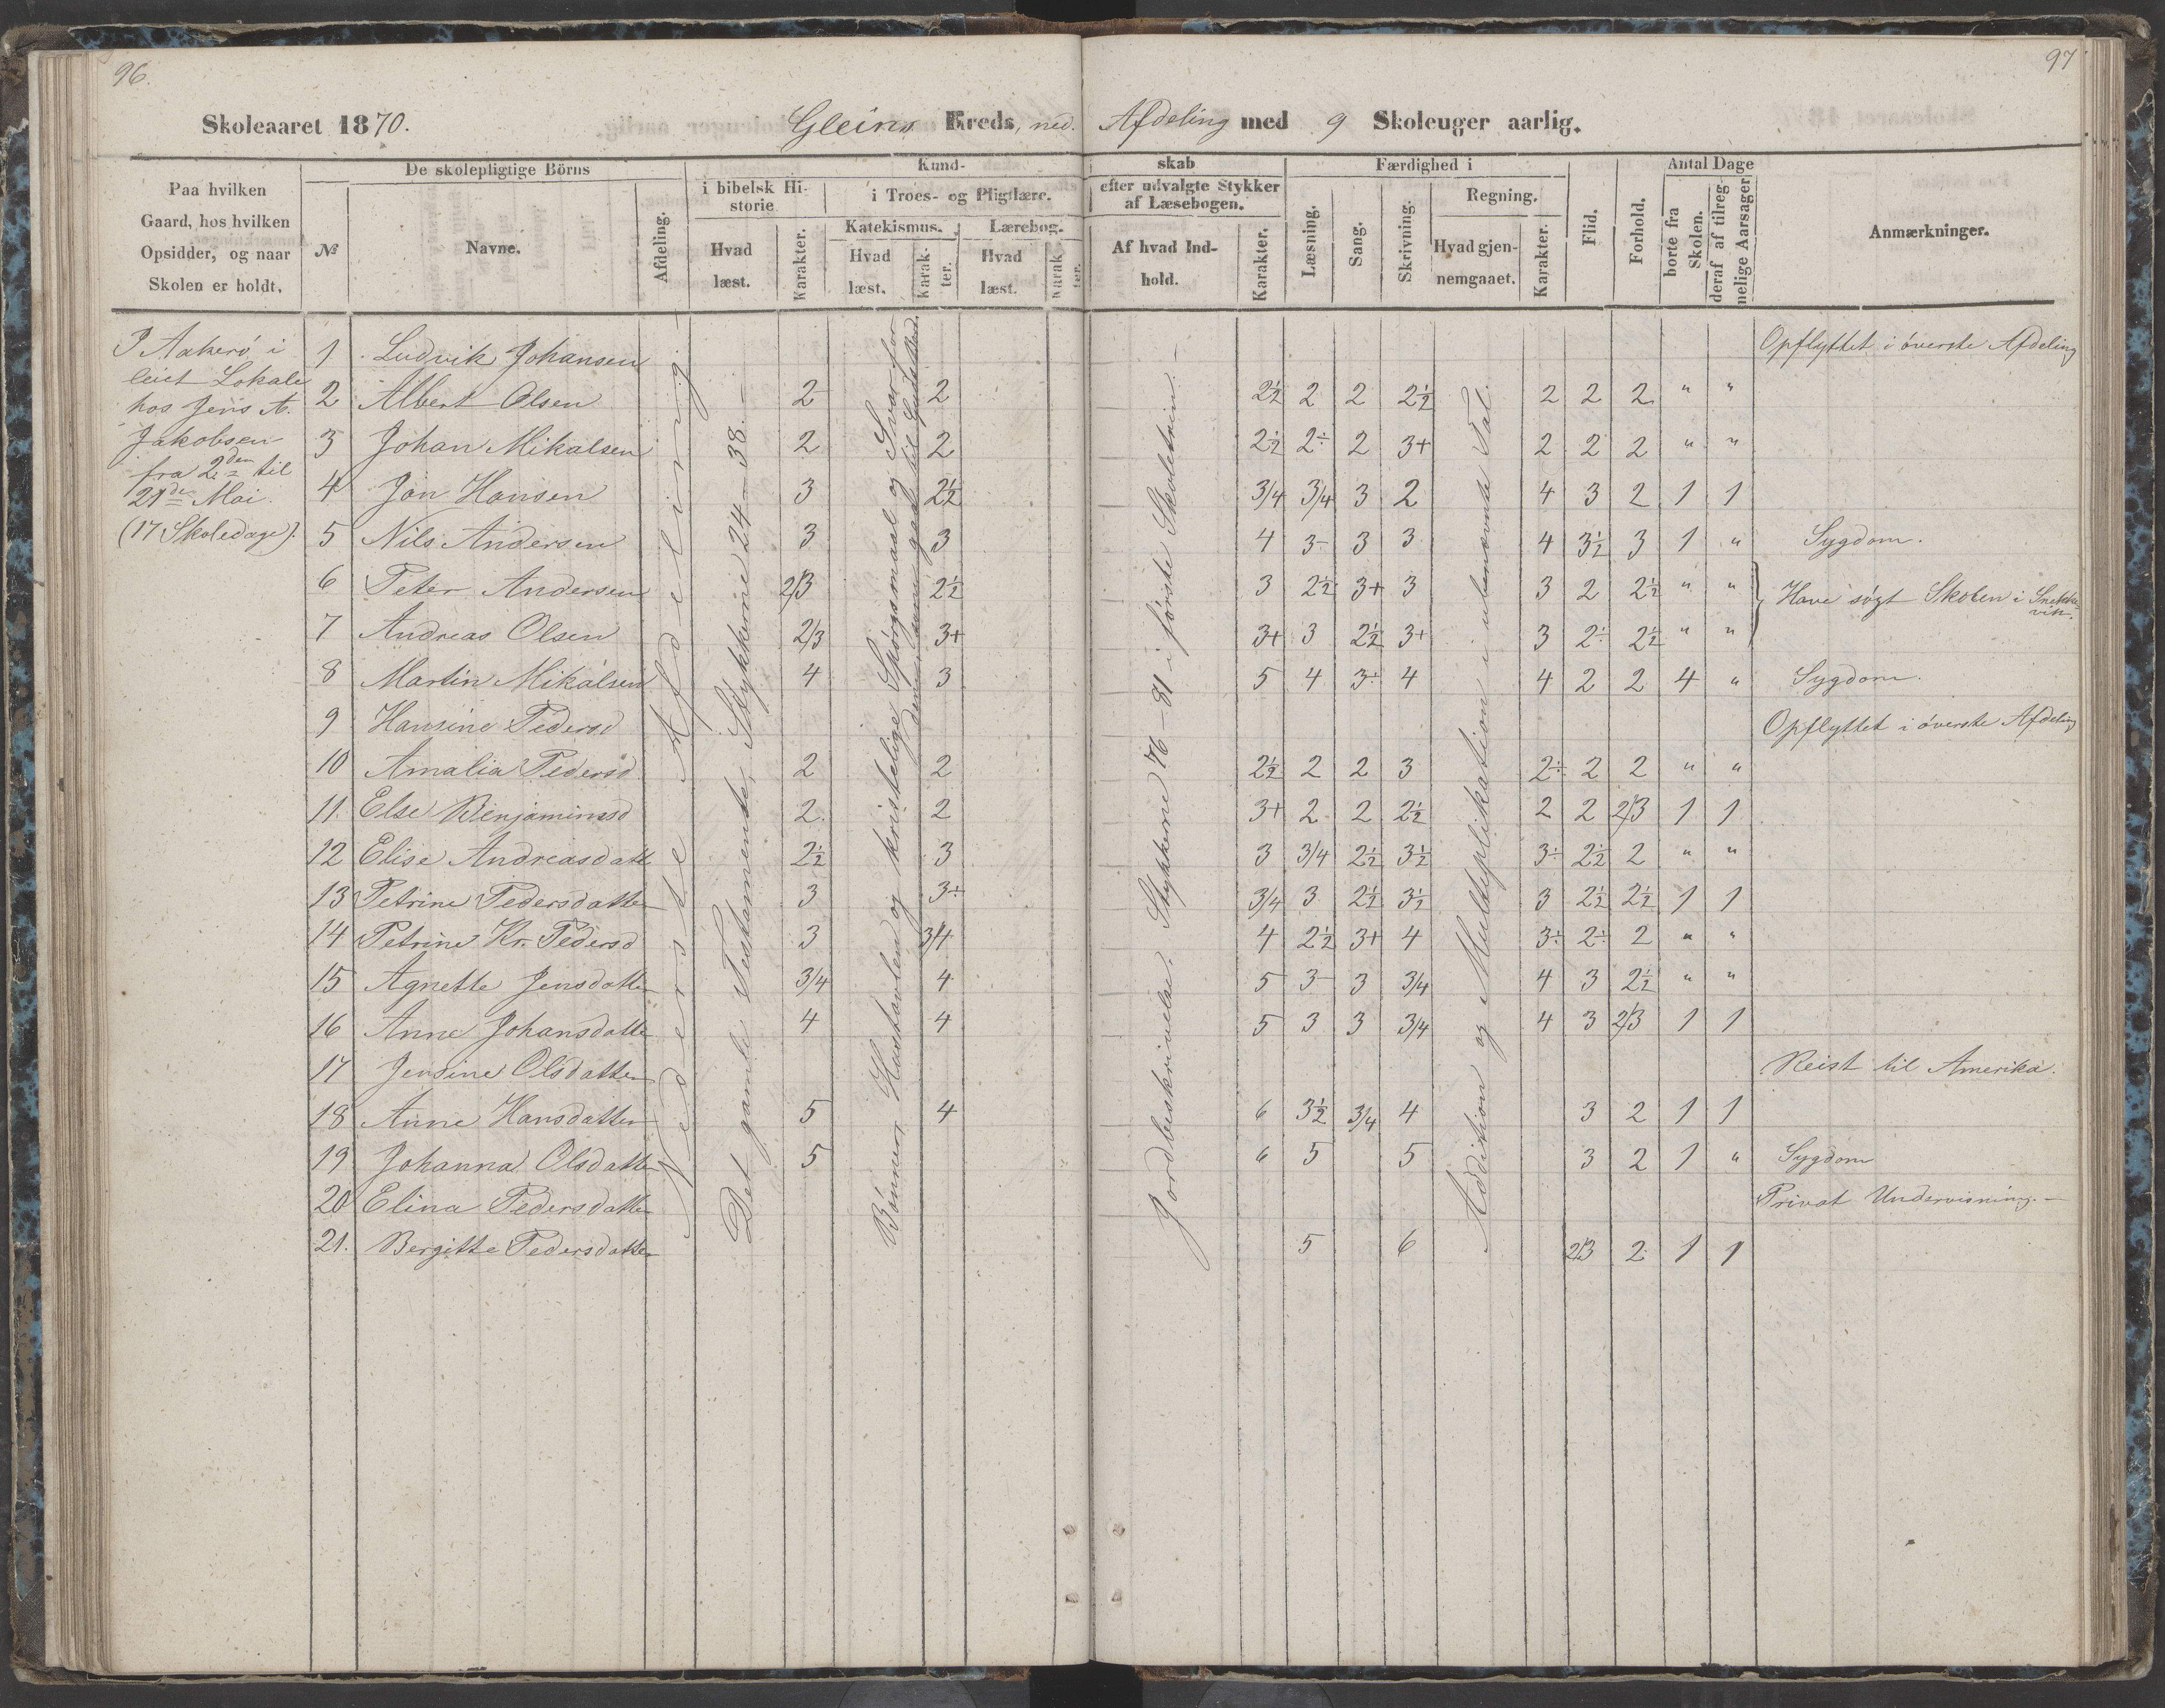 96.
97
Skoleaaret 1870. Gleins Kreds, ned. Afdeling med 9 Skoleuger aarlig.
Paa hvilken Gaard, hos hvilken Opsidder, og naar Skolen er holdt.
De skolepligtige Börns
№ Navne. Afdeling.
Kundskab
i bibelsk Historie
Hvad læst. Karakter.
i Troes- og Pligtlære.
Katekismus. Lærebog.
Hvad læst. Karakter. Hvad læst. Karakter.
efter udvalgte Stykker af Læsebogen.
Af hvad Indhold. Karakter.
Færdighed i
Læsning. Sang. Skrivning. Regning.
Hvad gjennemgaaet. Karakter.
Flid. Forhold.
Antal Dage
borte fra Skolen. deraf af tilregnelige Aarsager
Anmærkninger.
I Aakerö i
leiet Lokale
hos Jens A.
Jakobsen
fra 2den til
21de Mai.
(17 Skoledage).
Nederste Afdeling.
Det gamle Testamente, Stykkerne 24-38.
Bönnen, Hustavlen og kristelige Spörgsmaal og Svar for
dem som ville gaa til Guds Bord.
Jordbeskrivelse. Stykkerne 76-81 i förste Skoletrin.
Addition og Multiplikation i ubenævnte Tal.
1 Ludvik Johansen Opflyttet i överste Afdeling
2 Albert Olsen 2 2 2½ 2 2 2½ 2 2 2 " "
3 Johan Mikalsen 2 2 2½ 2÷ 2 3+ 2 2 2 " "
4 Jon Hansen 3 2½ 3/4 3/4 3 2 4 3 2 1 1
5 Nils Andersen 3 3 4 3- 3 3 4 3½ 3 1 " Sygdom.
6 Peter Andersen 2/3 2½ 3 2½ 3+ 3 3 2 2½ " "
Have sögt Skolen i Snekkevik.
7 Andreas Olsen 2/3 3+ 3+ 3 2½ 3+ 3 2÷ 2½ " "
8 Martin Mikalsen 4 3 5 4 3÷ 4 4 2 2 4 " Sygdom.
9 Hansine Pedersd Opflyttet i överste Afdeling
10 Amalia Pedersd 2 2 2½ 2 2 3 2÷ 2 2 " "
11. Else Benjaminsd 2. 2 3+ 2 2 2½ 2 2 2/3 1 1
12 Elise Andreasdatt 2½ 3 3 3/4 2½ 3½ 3÷ 2½ 2 " "
13 Petrine Pedersdatter 3 3÷ 3/4 3 2½ 3½ 3 2½ 2½ 1 1
14 Petrine Kr. Pedersd 3 3/4 4 2½ 3+ 4 3÷ 2÷ 2 " "
15 Agnette Jensdatter 3/4 4 5 3- 3 3/4 4 3 2½ " "
16 Anne Johansdatte 4 4 5 3 3 3/4 4 3 2/3 1 1
17 Jensine Olsdatter Reist til Amerika.
18 Anne Hansdatter 5 4 6 3½ 3/4 4 3 2 1 1
19 Johanna Olsdatter 5 6 5 5 3 2 1 " Sygdom
20 Elina Pedersdatter Privat Undervisning.-
21. Bergitte Pedersdatter 5 6 2/3 2 1 1